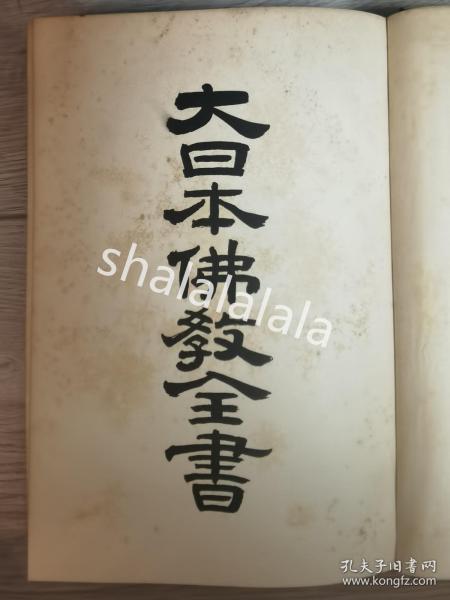 大日本佛教全書
shalalalala
孔夫子旧书网
www.kongfz.com